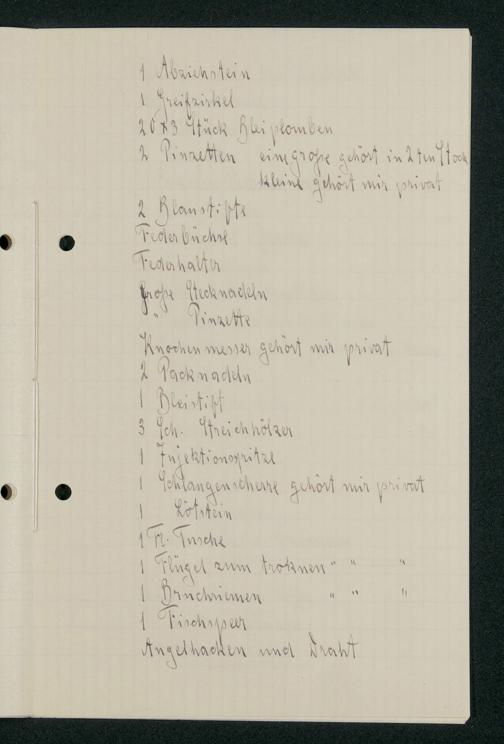 1 Abziehstein
1 Greifzirkel
20x3 Stück Bleiplomben
2 Pinzetten eine große gehört in 2ten Stock
kleine gehört mir privat
2 Blaustifte
Federbüchse
Federhalter
große Stecknadeln
" Pinzette
Knochenmesser gehört mir privat
2 Packnadeln
1 Bleistift
3 Sch. Streichhölzer
1 Injektionspritze
1 Schlangenscherre gehört mir privat
1 Lötstein
1 Fl. Tusche
1 Flügel zum troknen " " "
1 Bruchriemen " " "
1 Fischspeer
Angelhacken und Draht